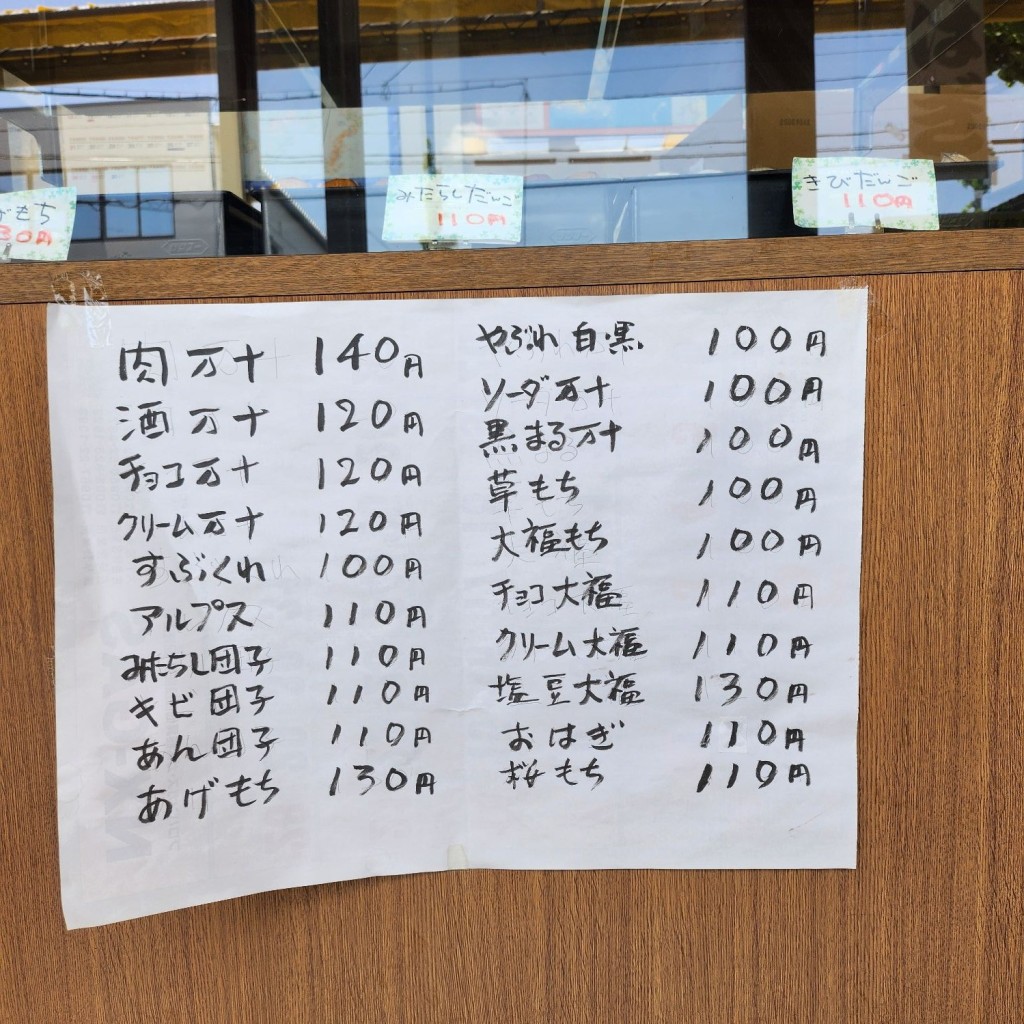 げもち
30円
みたらしだんご
110円
きびだんご
110円
肉万十 140円
酒万十 120円
チョコ万十 120円
クリーム万十 120円
すぶくれ 100円
アルプス 110円
みたらし団子 110円
キビ団子 110円
あん団子 110円
あげもち 130円
やぶれ白黒 100円
ソーダ万十 100円
黒まる万十 100円
草もち 100円
大福もち 100円
チョコ大福 110円
クリーム大福 110円
塩豆大福 130円
おはぎ 110円
桜もち 110円